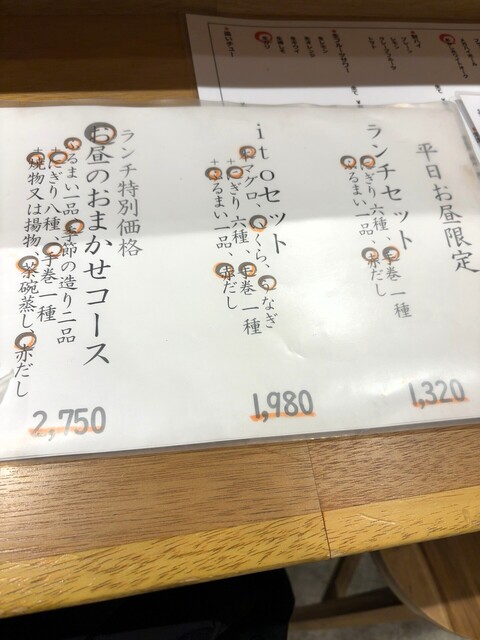 平日お昼限定
ランチセット
にぎり六種、手巻一種
ふるまい一品、赤だし
1,320
itoセット
マグロ、いくら、うなぎ
+にぎり六種、手巻一種
+ふるまい一品、赤だし
1,980
ランチ特別価格
お昼のおまかせコース
ふるまい一品、季節の造り二品
+にぎり八種、手巻一種
+焼物又は揚物、茶碗蒸し、赤だし
2,750